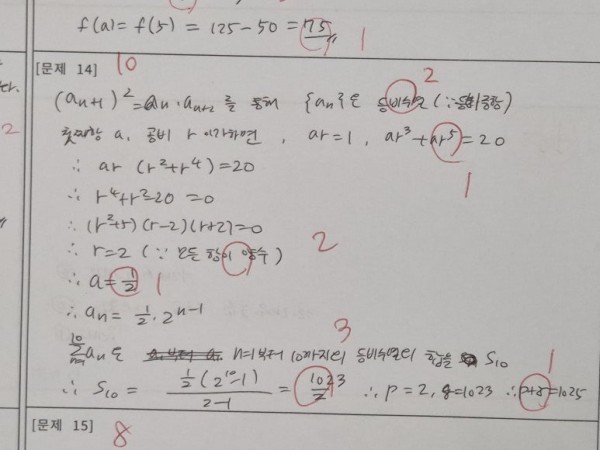 f(a) = f(5) = 125-50 = 75 1
2
[문제 14] 10
(aₙ₊₁)² = aₙ·aₙ₊₂ 를 통해 {aₙ}은 등비수열 (∵등비중항) 2
첫째항 a, 공비 r 이라하면, ar=1, ar³+ar⁵=20
∴ ar (r²+r⁴)=20 1
∴ r⁴+r²-20=0
∴ (r²+5)(r-2)(r+2)=0
∴ r=2 (∵ 모든 항이 양수) 2
∴ a=1/2 1
∴ aₙ= 1/2·2ⁿ⁻¹
∑ₙ₌₁¹⁰ aₙ은 n=1부터 10까지의 등비수열의 합을 S₁₀ 3
∴ S₁₀ = 1/2(2¹⁰-1)/2-1 = 1023/2 ∴ p=2, q=1023 ∴p+q=1025 1
[문제 15] 8